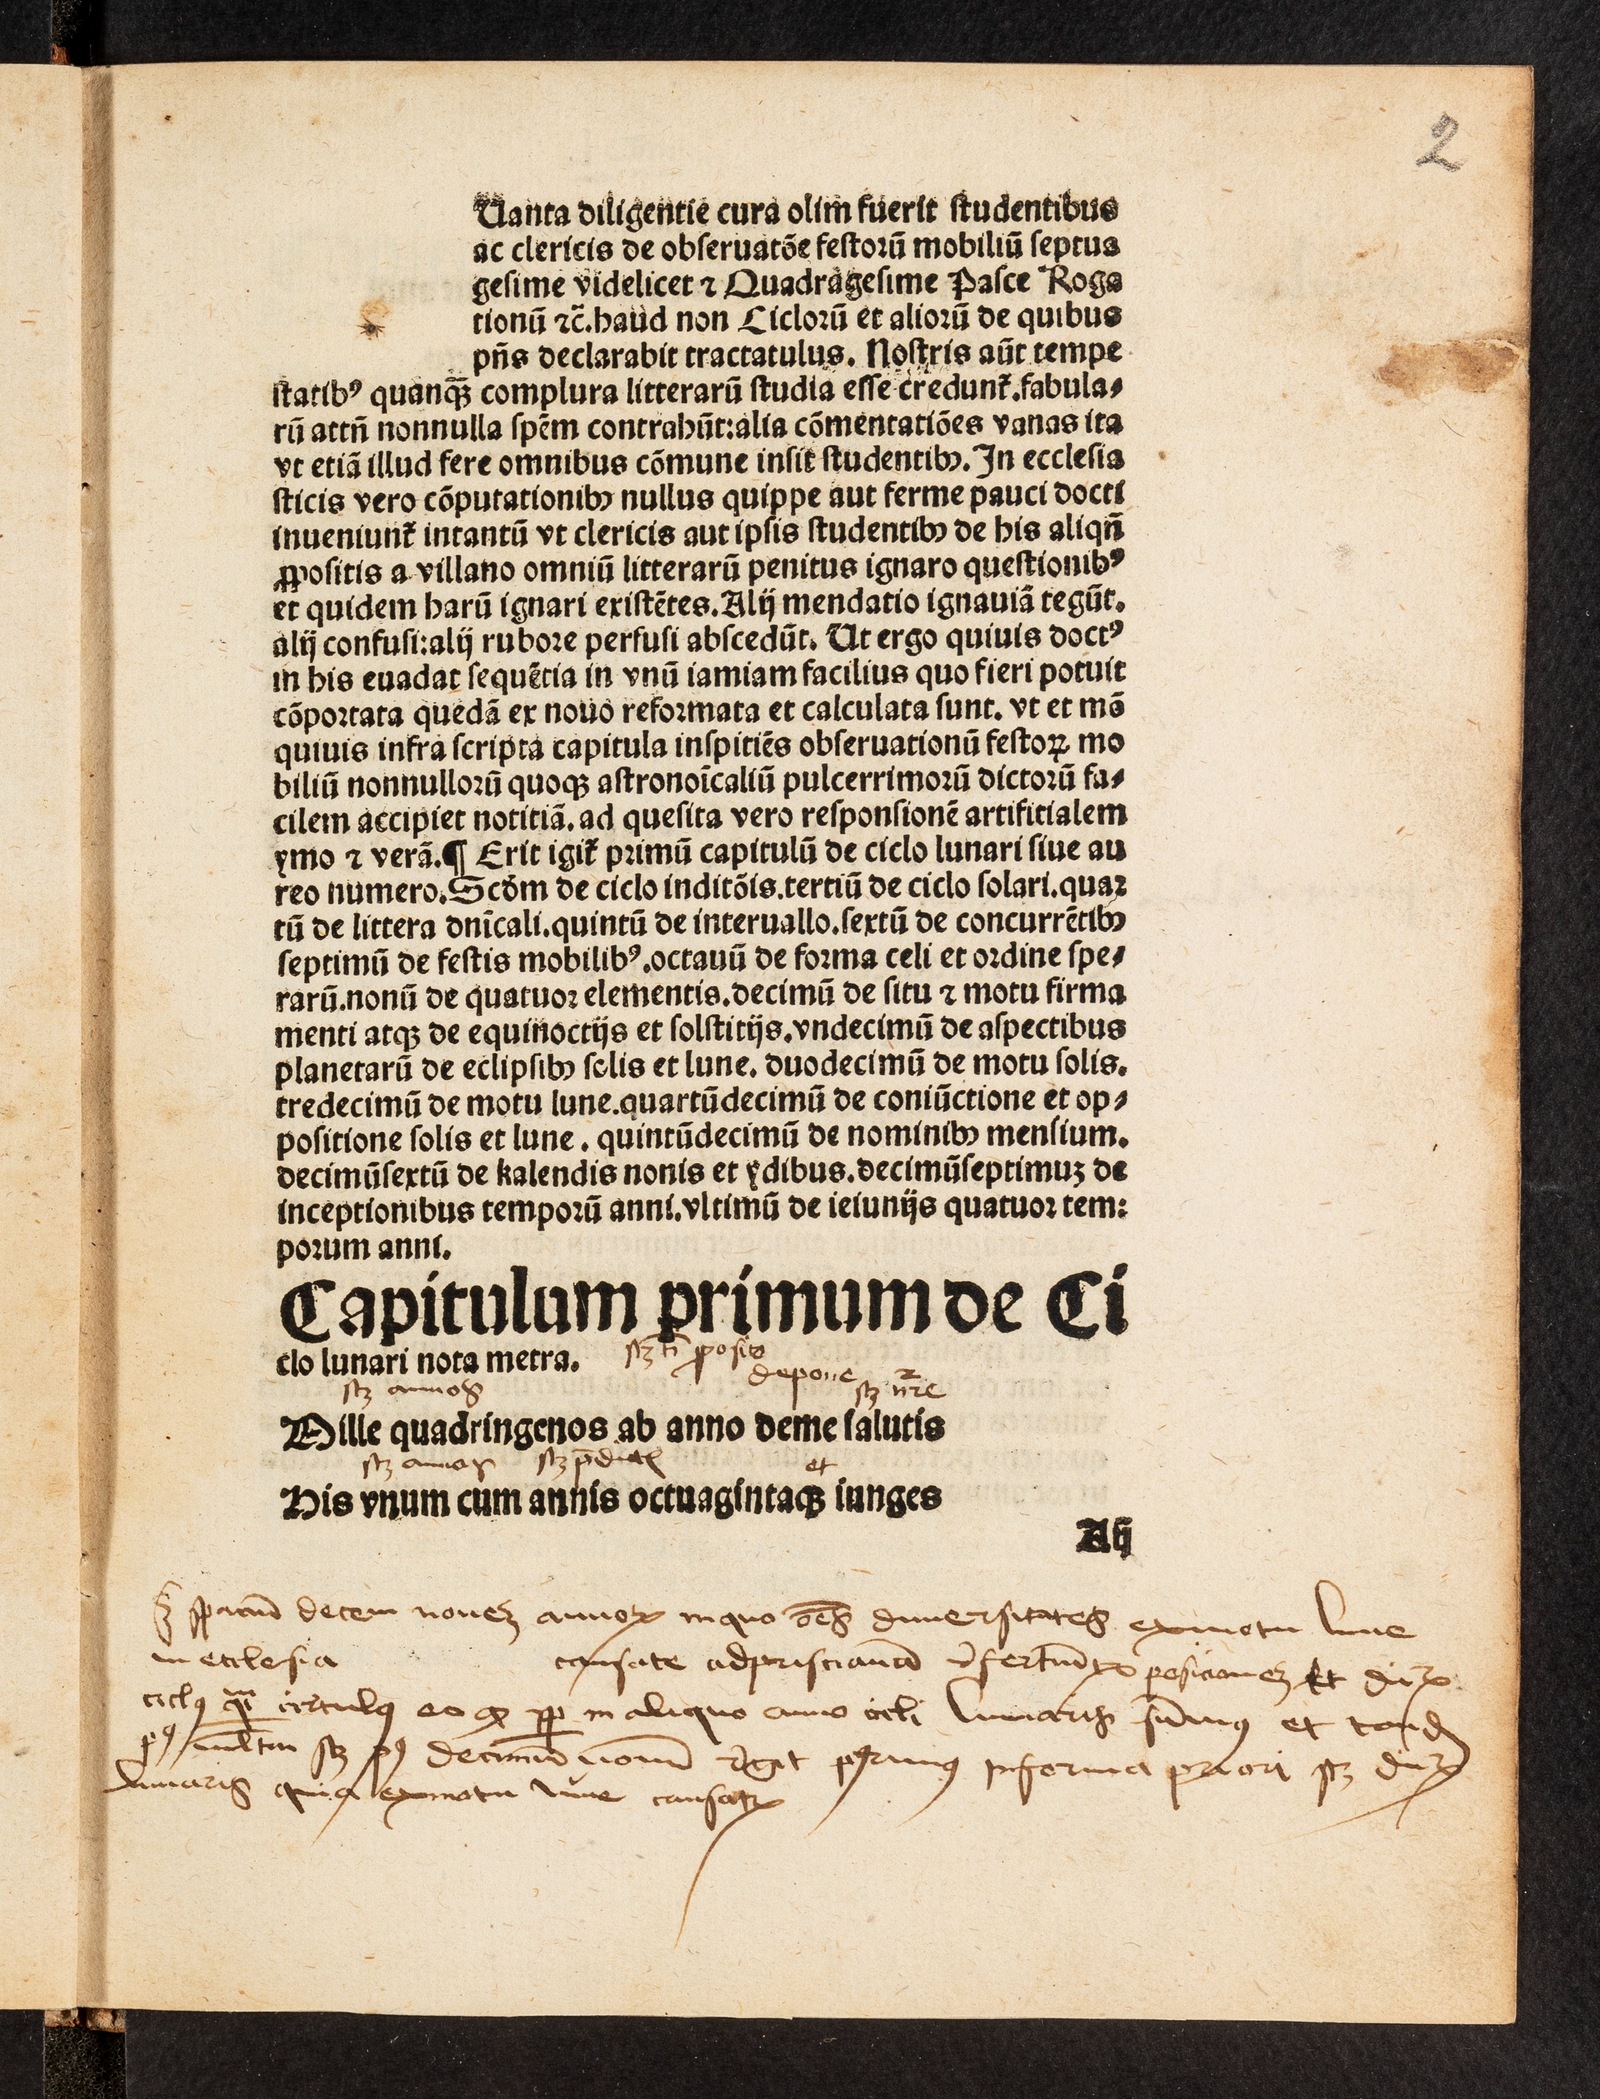 2
Uanta diligentie cura olim fuerit studentibus
ac clericis de obseruatōe festorū mobiliū septua
gesime videlicet ⁊ Quadragesime Pasce Roga
tionū ⁊c̄. haud non Ciclorū et aliorū de quibus
pn̄s declarabit tractatulus. Nostris aūt tempe
statibꝰ quanqȝ̄ complura litterarū studia esse credunt᷑. fabula⸗
rū attn̄ nonnulla spēm contrahūt: alia cōmentatiōes vanas ita
vt etiā illud fere omnibus cōmune insit studentibꝫ. In ecclesia
sticis vero cōputationibꝫ nullus quippe aut ferme pauci docti
inueniunt᷑ intantū vt clericis aut ipsis studentibꝫ de his aliqn̄
ꝓpositis a villano omniū litterarū penitus ignaro questionibꝰ
et quidem harū ignari existētes. Alij mendatio ignauiā tegūt.
alij confusi: alij rubore perfusi abscedūt. Ut ergo quiuis doctꝰ
in his euadat sequētia in vnū iamiam facilius quo fieri potuit
cōportata quedā ex nouo reformata et calculata sunt. vt et mō
quiuis infra scripta capitula inspitiēs obseruationū festoꝝ mo
biliū nonnullorū quoqȝ astronoīcaliū pulcerrimorū dictorū fa⸗
cilem accipiet notitiā. ad quesita vero responsionē artifitialem
ymo ⁊ verā. ¶ Erit igit᷑ primū capitulū de ciclo lunari siue au
reo numero. Scdm̄ de ciclo inditōis. tertiū de ciclo solari. quar
tū de littera dnīcali. quintū de interuallo. sextū de concurrētibꝫ
septimū de festis mobilibꝰ. octauū de forma celi et ordine spe⸗
rarū. nonū de quatuor elementis. decimū de situ ⁊ motu firma
menti atqȝ de equinoctijs et solstitijs. vndecimū de aspectibus
planetarū de eclipsibꝫ solis et lune. duodecimū de motu solis.
tredecimū de motu lune. quartūdecimū de coniūctione et op⸗
positione solis et lune. quintūdecimū de nominibꝫ mensium.
decimūsextū de kalendis nonis et ydibus. decimūseptimuȝ de
inceptionibus temporū anni. vltimū de ieiunijs quatuor tem:
porum anni.
Capitulum primum de Ci
clo lunari nota metra.
depone
Mille quadringenos ab anno deme salutis
et
His vnum cum annis octuagintaqȝ iunges
Aij
decem noueȝ annoꝝ in quo diuersitates ex motu lune
in ecclesia causate et
circulus in aliquo anno cicli lunaris et
decimū nonū primus in forma priori
lunaris quia ex motu lune